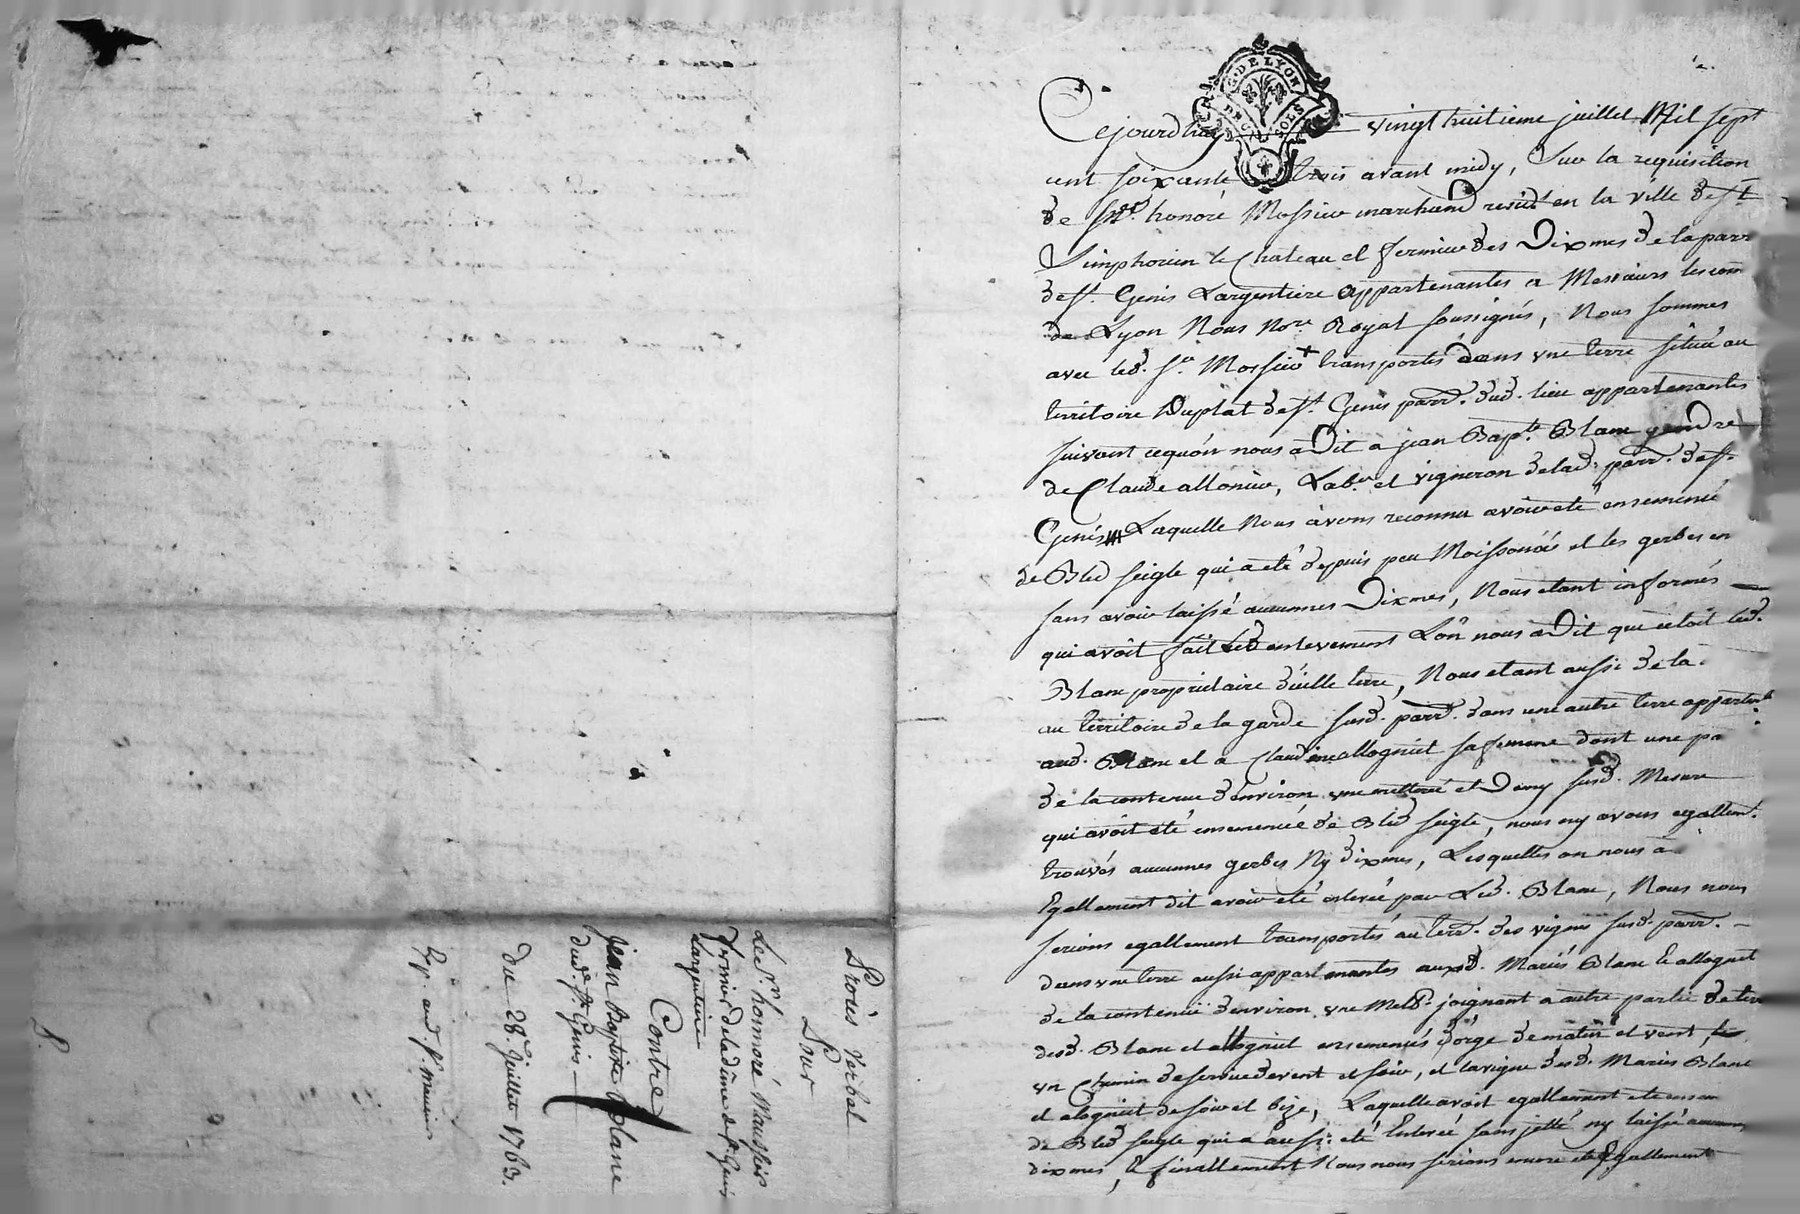 G. DE LYON
DEC. SOLS
Cejourdhuy vingt huitieme juillet Mil sept
cent soixante trois avant midy, Sur la requisition
de Sr. honoré Mossieu marchand residt. en la ville de St.
Simphorien le Chateau et fermier des Dixmes de la parr
de St. Genis Largentiere appartenantes a Messieurs les com
de Lyon Nous Nore. Royal soussignés, Nous sommes
avec led. Sr. Mossieu transportés dans une terre située au
territoire Duplat de St. Genis parr. dud. lieu appartenantes
suivant cequón nous a Dit a jean Bapte. Blanc gendre
de Claude allonieu, Labr. et vigneron de lad. parr. de St.
Genis Laquelle Nous avons reconnu avoir eté ensemencé
de Bled seigle qui a eté depuis peu Moissonée et les gerbes en
sans avoir laissé aucunnes Dixmes, Nous etant informés
qui avoit fait led enlevement Lon nous a Dit que cetoit led.
Blanc proprietaire dicelle terre, Nous etant aussi de la
au territoire de la garde susd. parr. dans une autre terre appartente
aud. Blanc et a Claudine allognet sa femme dont une pa
de la contenue denviron une metteré et Demy susd. Mesure
qui avoit eté ensemencée de Bled seigle, nous ny avons egallemt.
trouvés aucunnes gerbes Ny dixmes, Lesquelles on nous a
Egallement dit avoir eté enlevée par Led. Blanc, Nous nous
serions egallement transportés au terd. des vignes susd. parr.
dans une terre aussi appartenantes auxd. Mariés Blanc et allognet
de la contenüe denviron une Metd. joignant a autre partie de terre
desd. Blanc et allognet ensemencés d'orge de matin et vent,
un Chemin de service de vent et soir, et la vigne desd. Mariés Blanc
et alognet de soir et bize, Laquelle avoit egallement eté ensem
de Bled seigle qui a aussi eté Enlevée sans jetté ny laissé aucunnes
dixmes, et finallement Nous nous serions encore egallement
Procès Verbal
Pour
Le Sr. honnoré Maussier
fermier de la dime de St. Genis
Largentiere
Contre
Jean Baptiste Blanc
dud. St. Genis
du 28e. Juillet 1763.